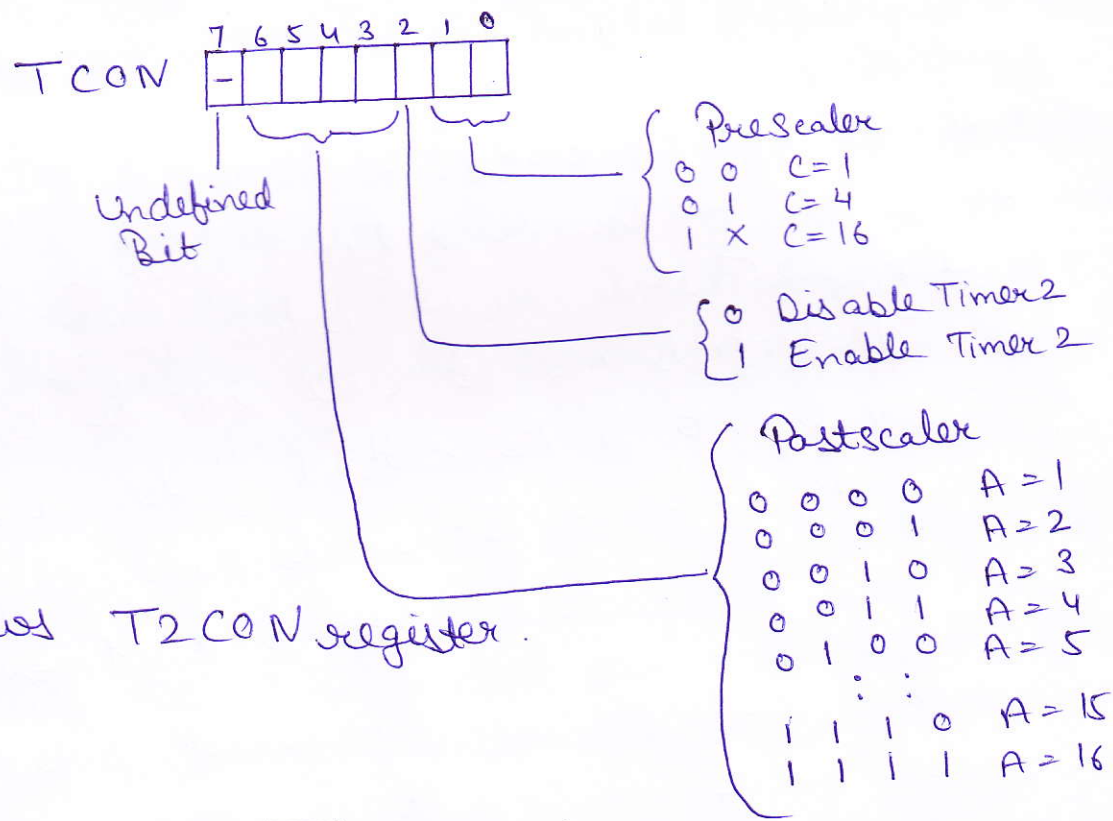 7 6 5 4 3 2 1 0
TCON -
Undefined
Bit
Prescaler
0 0 C=1
0 1 C=4
1 X C=16
0 Disable Timer2
1 Enable Timer 2
Postscaler
0 0 0 0 A=1
0 0 0 1 A=2
0 0 1 0 A=3
0 0 1 1 A=4
0 1 0 0 A=5
: :
1 1 1 0 A=15
1 1 1 1 A=16
T2CON register.